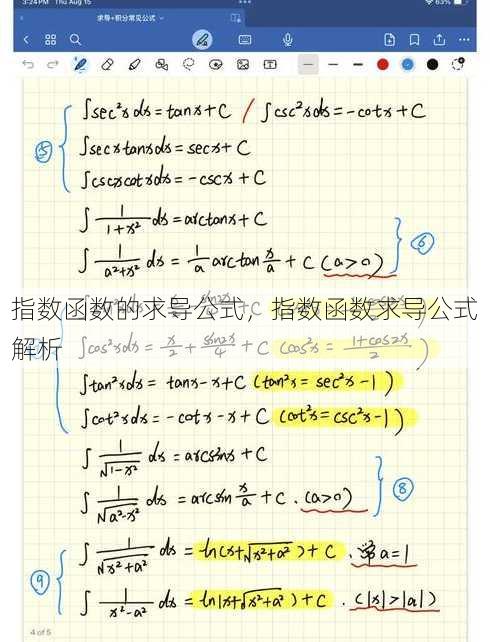 3:24 PM Thu Aug 15
63%
求导+积分常见公式
⑤ ∫sec²xdx=tanx+C / ∫csc²xdx=-cotx+C
∫secxtanxdx=secx+C
∫cscxcotxdx=-cscx+C
∫1/(1+x²)dx=arctanx+C
∫1/(a²+x²)dx=1/a arctan x/a+C (a>0) ⑥
指数函数的求导公式，指数函数求导公式
解析
∫cos²xdx=x/2+sin2x/4+C (cos²x=(1+cos2x)/2)
∫tan²xdx=tanx-x+C (tan²x=sec²x-1)
∫cot²xdx=-cotx-x+C (cot²x=csc²x-1)
∫1/√(1-x²)dx=arcsinx+C
∫1/√(a²-x²)dx=arcsin x/a+C.(a>0) ⑧
⑨ ∫1/√(x²+a²)dx=ln(x+√(x²+a²))+C. a=1
∫1/√(x²-a²)dx=ln|x+√(x²+a²)+C.(|x|>|a|)
4 of 5